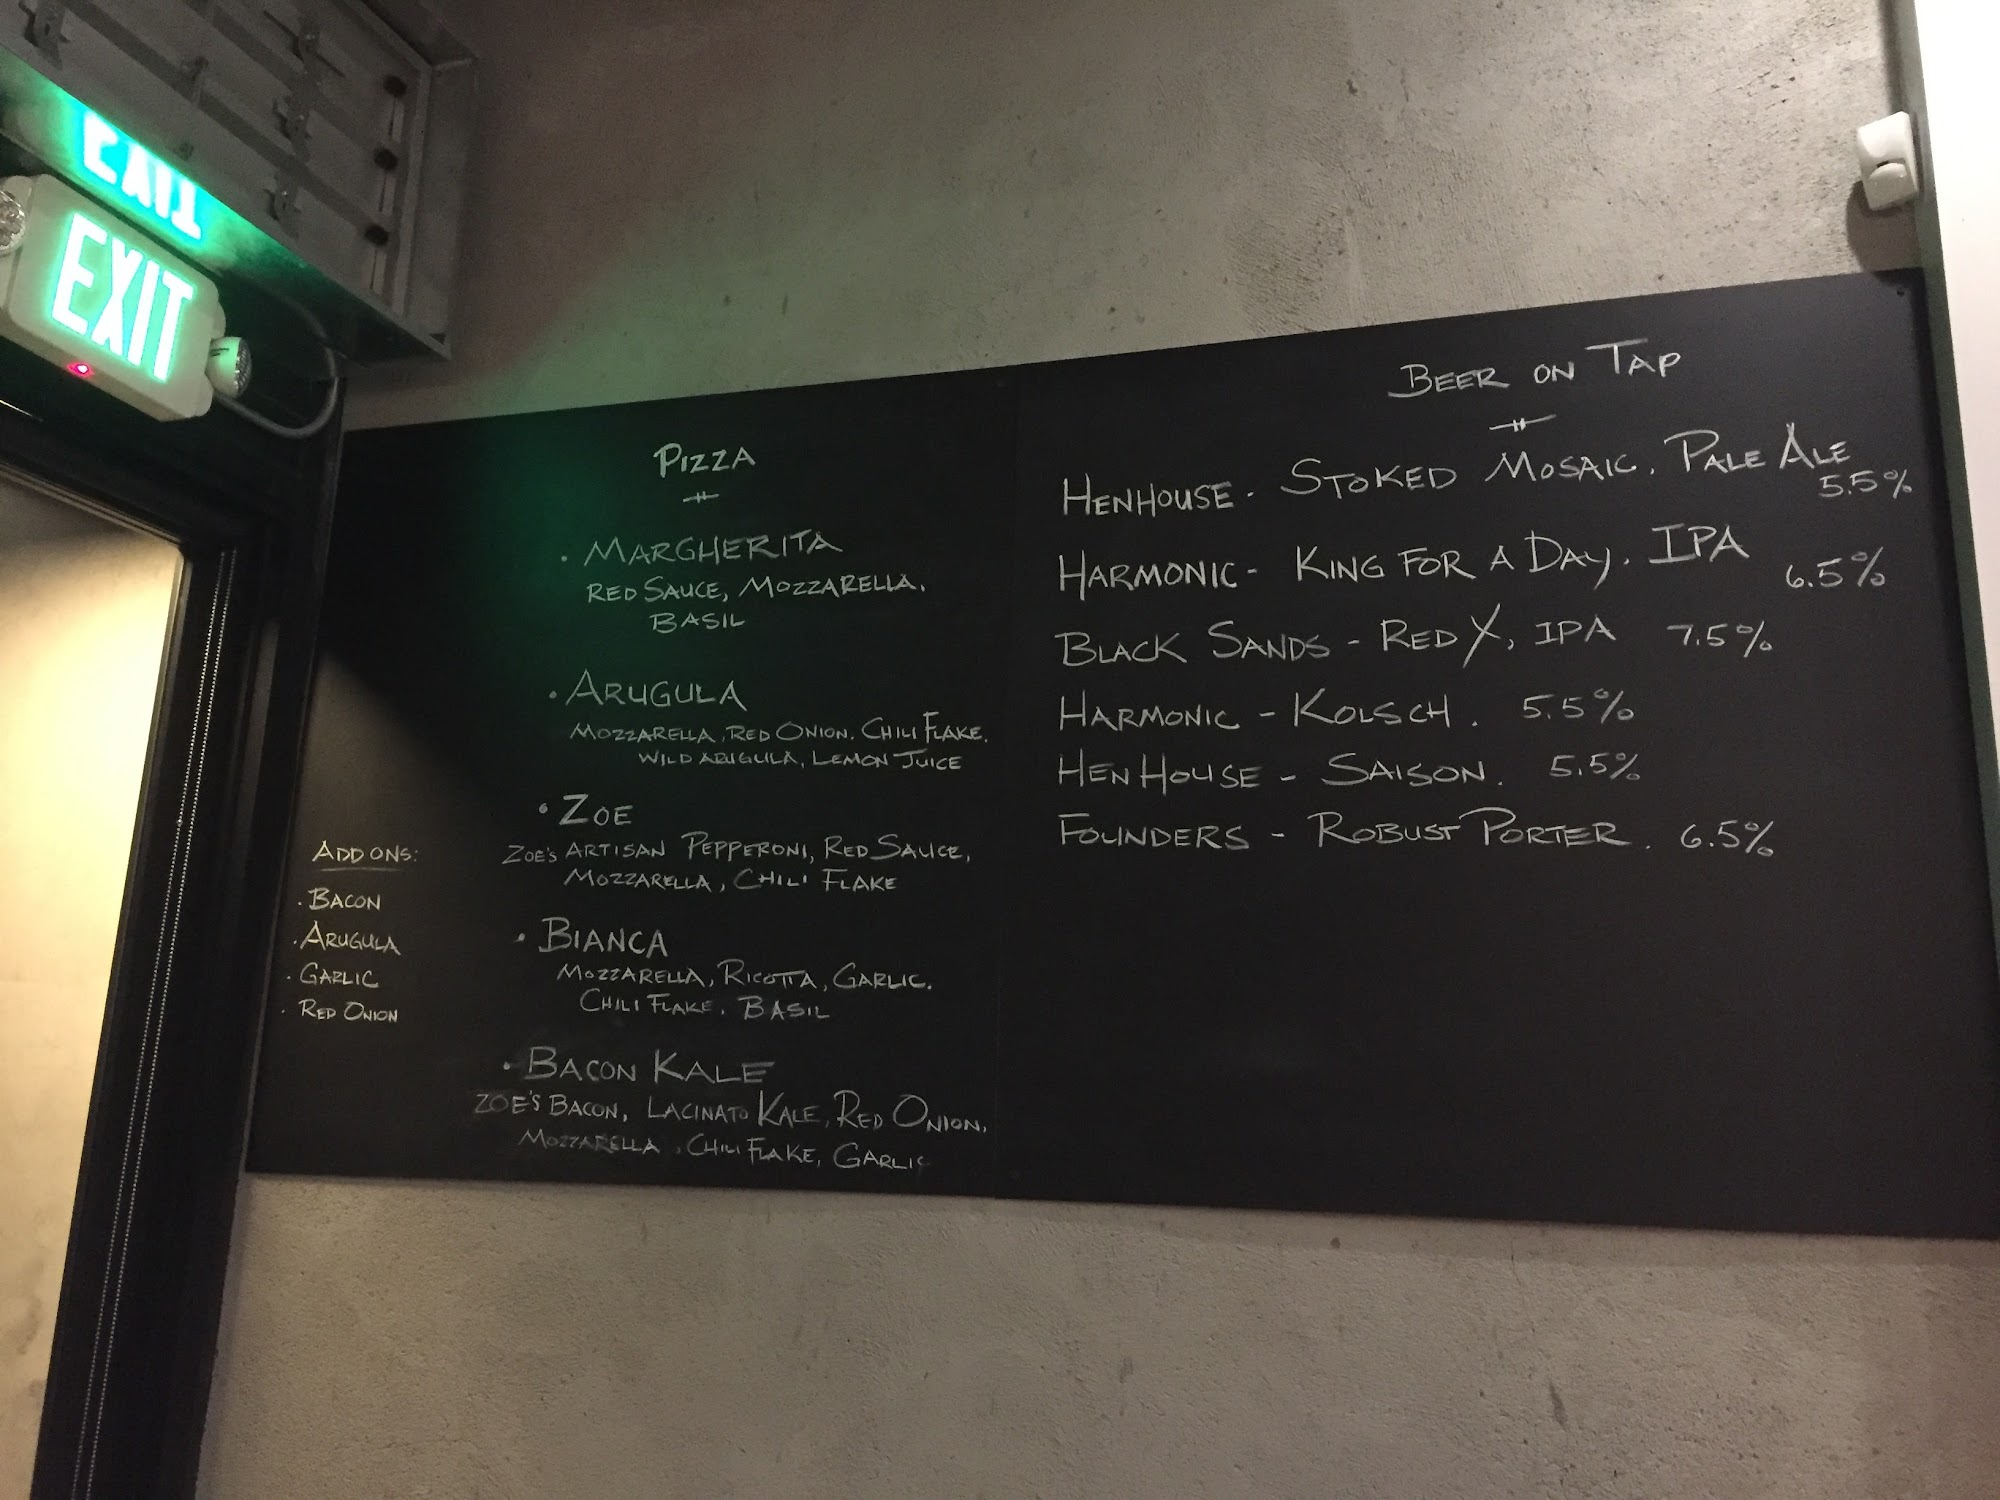 EXIT
PIZZA
· MARGHERITA
RED SAUCE, MOZZARELLA,
BASIL
· ARUGULA
MOZZARELLA, RED ONION, CHILI FLAKE,
WILD ARUGULA, LEMON JUICE
· ZOE
ZOE'S ARTISAN PEPPERONI, RED SAUCE,
MOZZARELLA, CHILI FLAKE
· BIANCA
MOZZARELLA, RICOTTA, GARLIC,
CHILI FLAKE, BASIL
· BACON KALE
ZOE'S BACON, LACINATO KALE, RED ONION,
MOZZARELLA, CHILI FLAKE, GARLIC
ADD ONS:
· BACON
· ARUGULA
· GARLIC
· RED ONION
BEER ON TAP
HENHOUSE - STOKED MOSAIC, PALE ALE
5.5%
HARMONIC - KING FOR A DAY, IPA 6.5%
BLACK SANDS - RED X, IPA 7.5%
HARMONIC - KOLSCH. 5.5%
HENHOUSE - SAISON. 5.5%
FOUNDERS - ROBUST PORTER. 6.5%